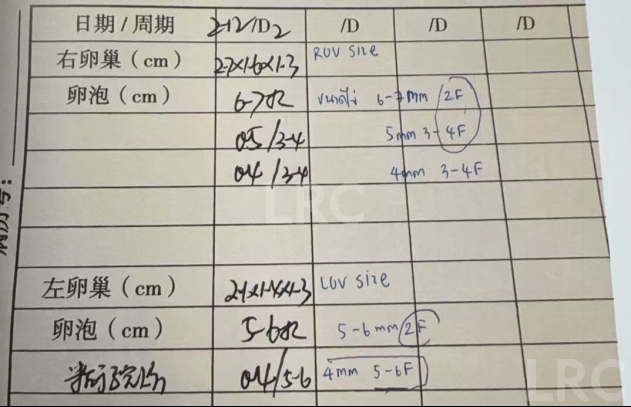 日期 / 周期 2-12/D2 /D /D /D
右卵巢（cm） 2.7×1.6×1.3 ROV size
卵泡（cm） 6-7 ขนาดไข่ 6-7mm 2F
0.5/3-4 5mm 3-4F
0.4/3-4 4mm 3-4F
LRC
左卵巢（cm） LOV size
卵泡（cm） 5-6 5-6mm 2F
0.4/5-6 4mm 5-6F
LRC